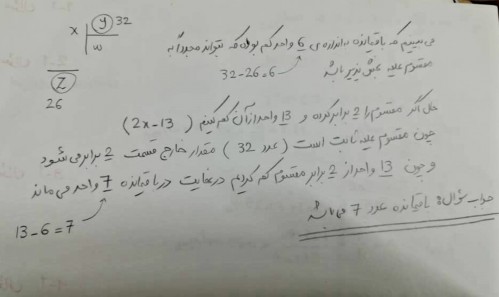 x | y 32
w
z
26
می بینیم که باقیمانده به اندازه ی 6 واحد کم بوده که بتواند مجدداً به
مقسوم علیه بخش پذیر باشد
32-26=6
حال اگر مقسوم را 2 برابر کرده و 13 واحد از آن کم کنیم (2x-13)
چون مقسوم علیه ثابت است (عدد 32) مقدار خارج قسمت 2 برابر می شود
و چون 13 واحد از 2 برابر مقسوم کم کردیم در نهایت در باقیمانده 7 واحد می ماند
13-6=7
جواب سؤال: باقیمانده عدد 7 می باشد